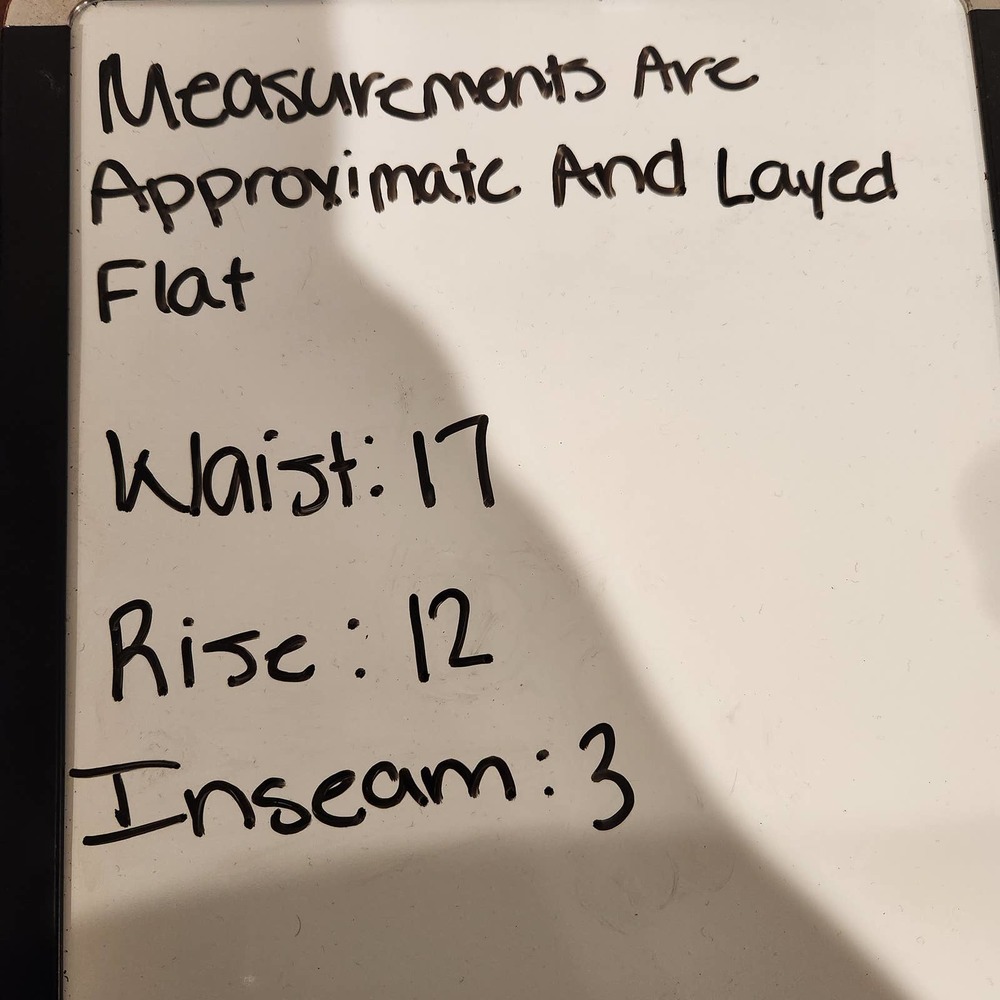 Measurements Are
Approximate And Layed
Flat
Waist: 17
Rise: 12
Inseam: 3